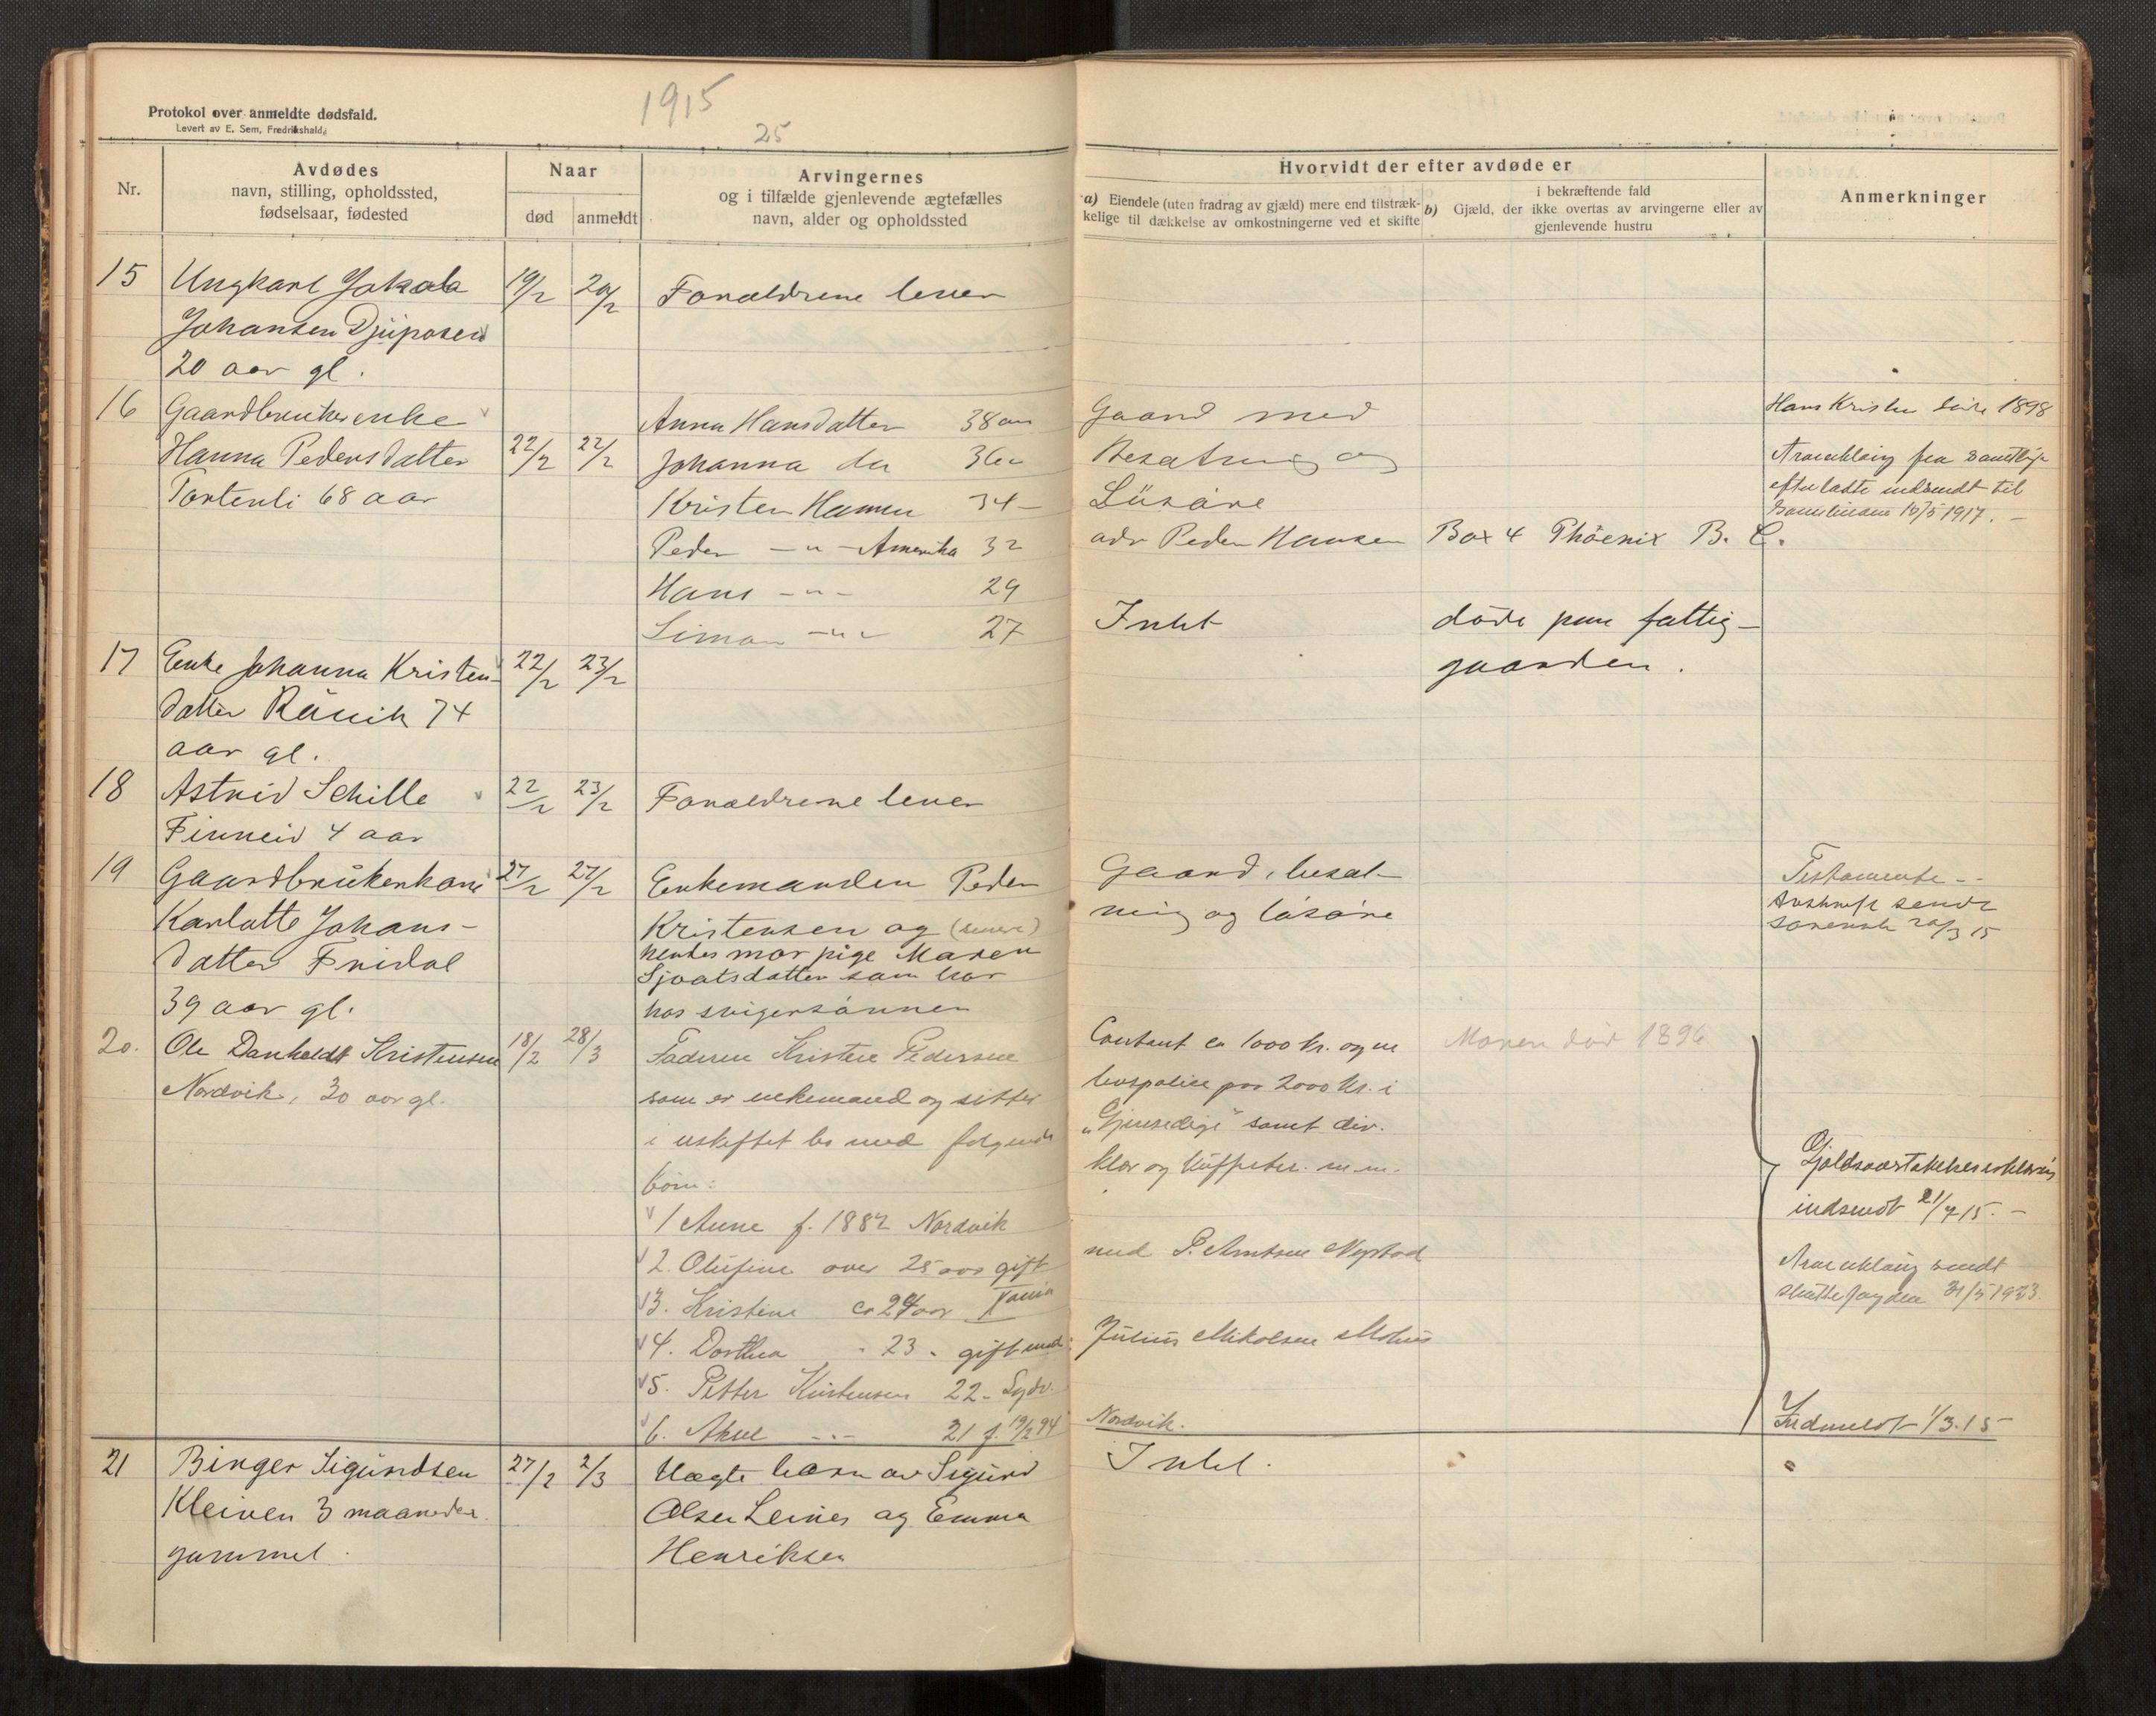 1915
25
Protokol over anmeldte dødsfald.
Levert av E. Sem, Fredrikshald.
Nr.
Avdødes
navn, stilling, opholdssted,
fødselsaar, fødested
Naar
død
anmeldt
Arvingernes
og i tilfælde gjenlevende ægtefælles
navn, alder og opholdssted
Hvorvidt der efter avdøde er
a) Eiendele (uten fradrag av gjæld) mere end tilstræk-
kelige til dækkelse av omkostningerne ved et skifte
i bekræftende fald
b) Gjæld, der ikke overtas av arvingerne eller av
gjenlevende hustru
Anmerkninger
15 Ungkarl Jakob 19/2 20/2 Forældrene lever
Johansen Djüposen
20 aar gl.
16 Gaardbrukerenke
Hanna Pedersdatter 22/2 22/2
Tortenli 68 aar
Anna Hansdatter 38 aar
Johanna do 36
Kristen Hansen 34 -
Peder - " - Amerika 32
Hans - " - 29
Simon - " - 27
Gaard med
Besætning og
Lüsøre
adr Peder Hansen Box 4 Phöenix B. C.
Hans Kristen døde 1898
fra samtlige
efterladte indsendt til
10/5 1917. -
17 Enke Johanna Kristen- 22/2 23/2
datter Råvik 74
aar gl.
Intet
døde paa fattig-
gaarden.
18 Astrid Schille 22/2 23/2 Forældrene lever
Finneid 4 aar
19 Gaardbrükerkone 27/2 27/2
Karlotte Johans-
datter Fridal
39 aar gl.
Enkemanden Peder
Kristensen og (senere)
hendes mor pige Maren
Sjoatsdatter som bor
hos svigersönnen
Gaard, besæt-
ning og løsøre
Testamente - -
Avskrift sendt
sorensk 20/3 15
20. Ole Danholdt Kristensen 18/2 28/3
Nordvik, 30 aar gl.
Faderen Kristen Pedersen
som er enkemand og sitter
i uskiftet bo med følgende
börn:
1 Anne f. 1882 Nordvik
2. Olufine over 25 aar gift
3. Kristine ca 24 aar
4. Dorthea - 23 - gift med
5. Petter Kristensen 22 -
6. 21 f. 19/2 94
Contant ca 1000 kr. og en
livspolice paa 2000 kr. i
"Gjensedige" samt div.
klær og m. m.
Moren död 1896
med P. Arntsen Nystad
Julius Mikalsen
Nordvik.
indsendt 21/7 15. -
sendt
31/5 1923
Indmeldt 1/3.15
21 Binger Sigurdsen 27/2 2/3
Kleiven 3 maaneder
gammel.
Uægte barn av Sigurd
Olsen Leines og Emma
Henriksen
Intet.